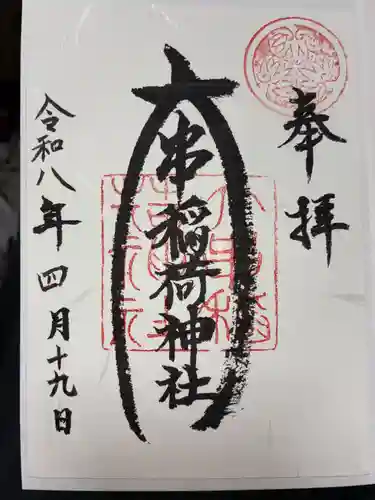 奉拝
大串稲荷神社
令和八年四月十九日